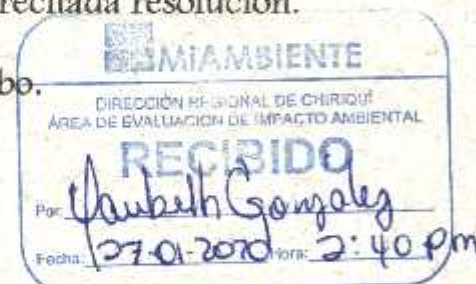 rechada resolución.
bo.
MIAMBIENTE
DIRECCIÓN REGIONAL DE CHIRIQUÍ
ÁREA DE EVALUACIÓN DE IMPACTO AMBIENTAL
RECIBIDO
Por: Yaubeth Gonzalez
Fecha: 27-01-2020 Hora: 2:40 pm